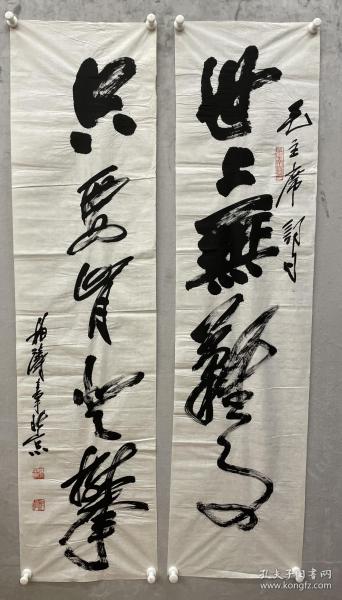 毛主席詞句
世上無難事
只要肯登攀
於北京
孔夫子旧书网
www.kongfz.com